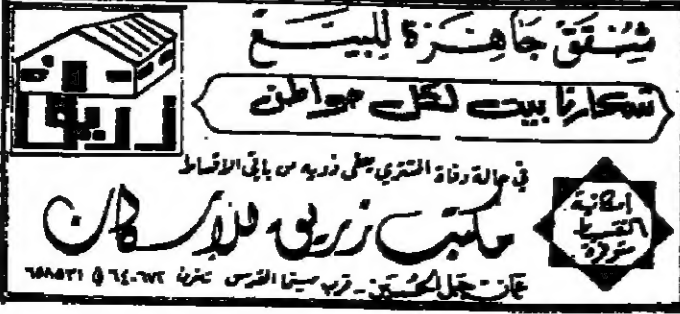 شقق جاهزة للبيع
شعارنا بيت لكل مواطن
زريق
في حالة وفاة المشتري يعفى ذويه من باقي الاقساط
امكانية
التقسيط
متوفرة
مكتب زريق للإسكان
عمان جبل الحسين - قرب سينما القدس تلفون